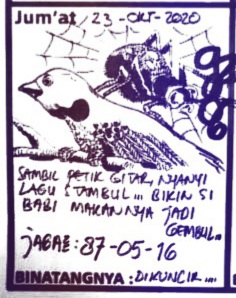 Jum'at, 23-OKT-2020
SAMBIL PETIK GITAR, NYANYI
LAGU STAMBUL... BIKIN SI
BABI MAKANNYA JADI
GEMBUL..
JAGAE: 87-05-16
BINATANGNYA: DIKUNCIR....